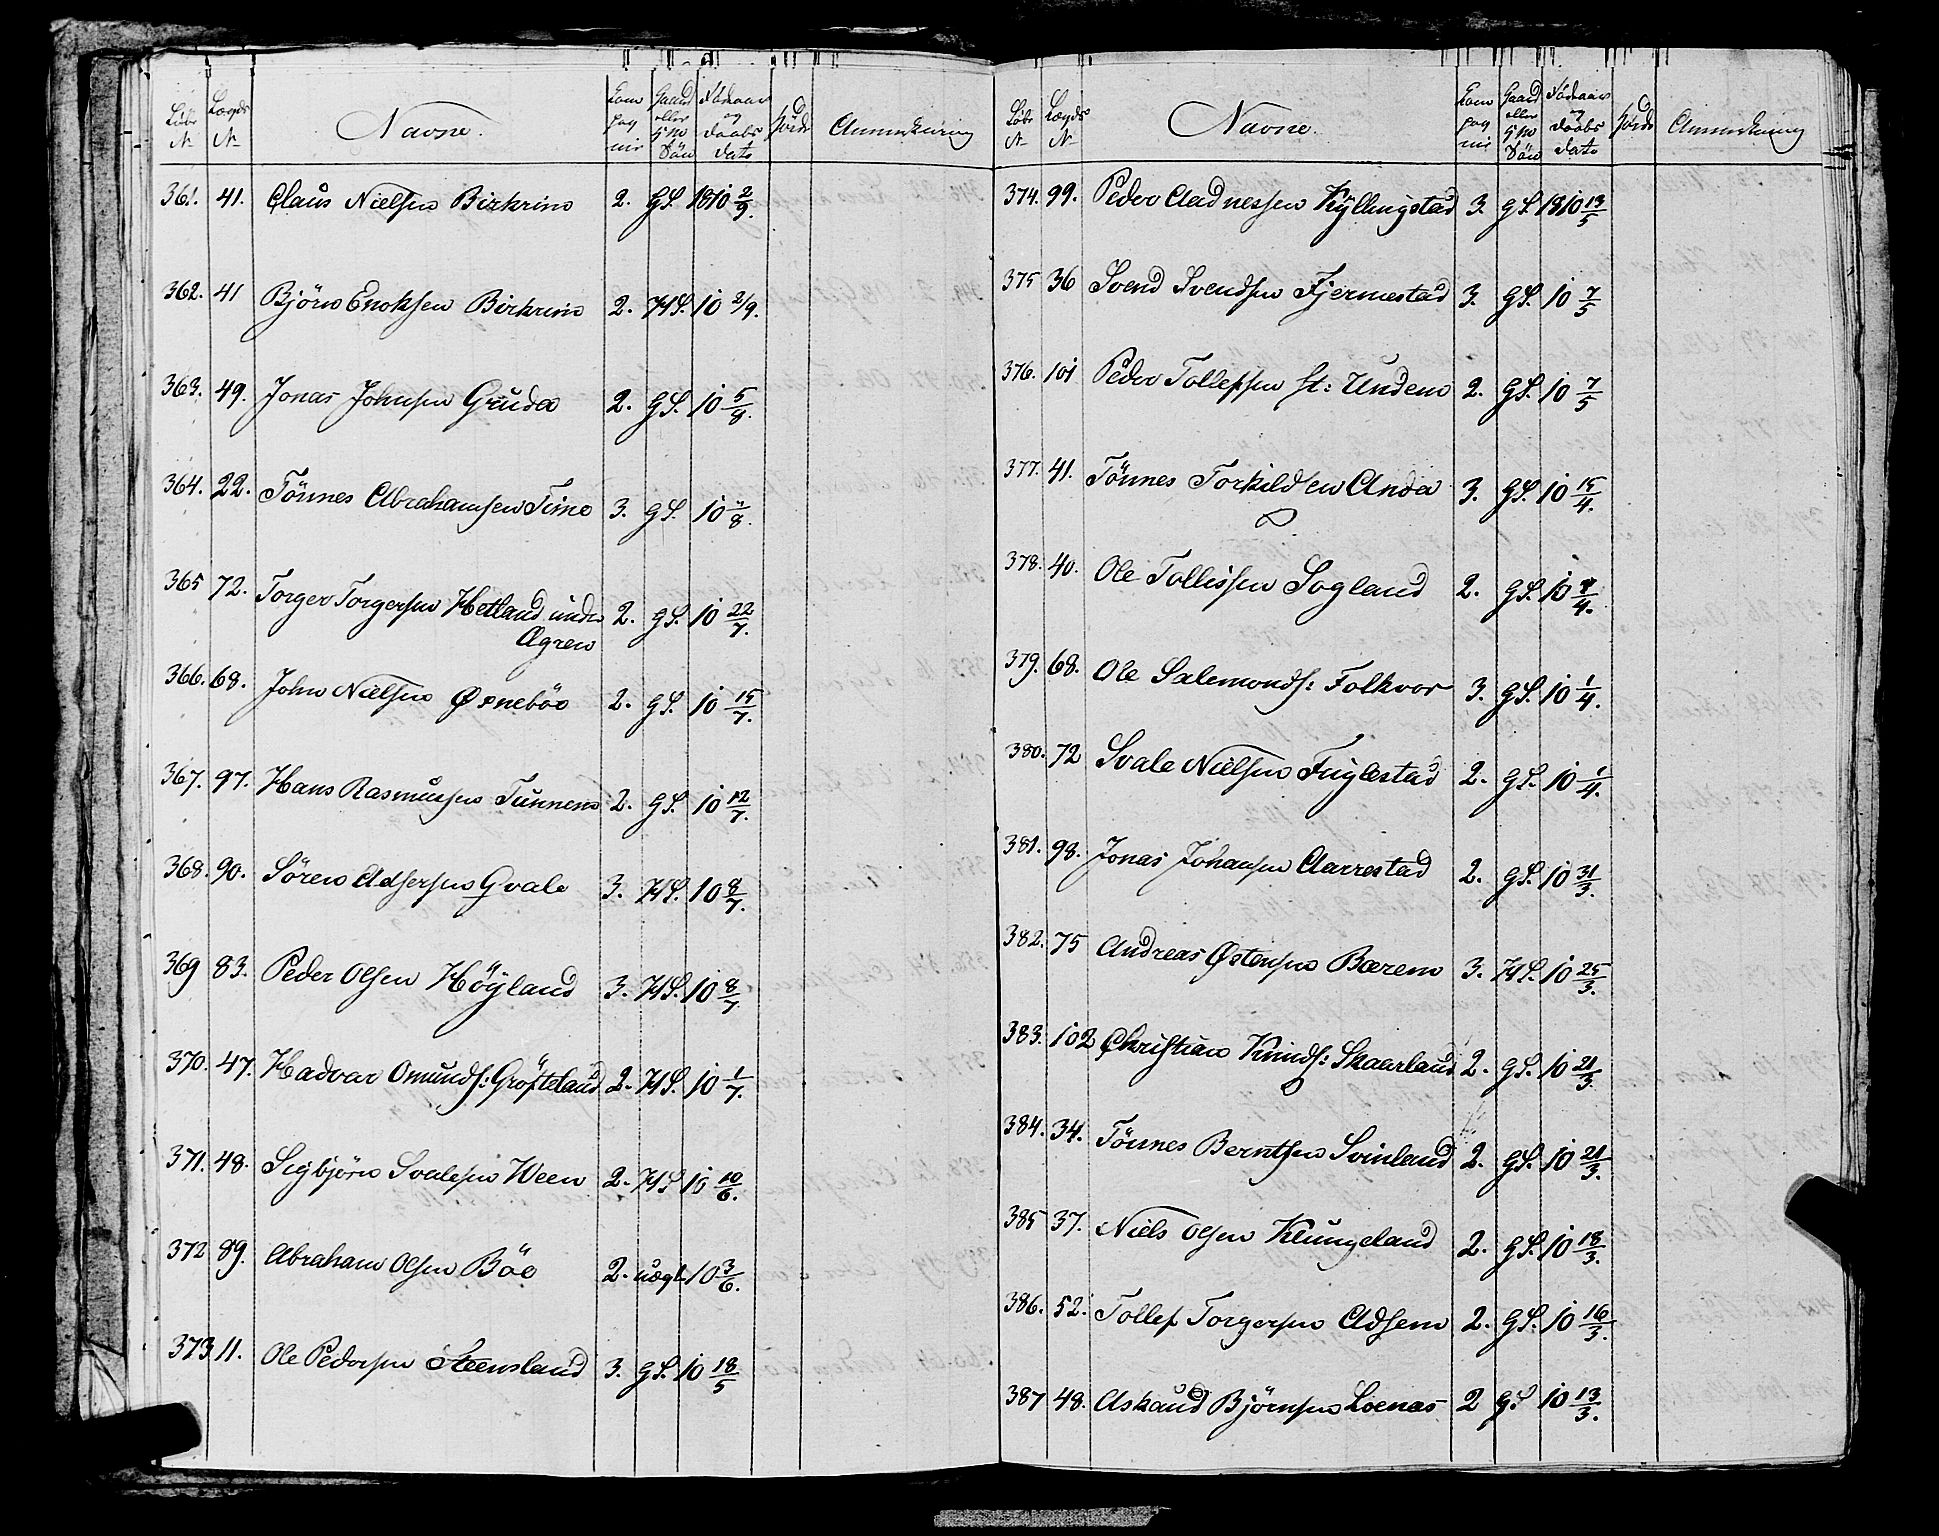 Løbe N Lægds N Navne. Kompagnie Gaard eller Hm Søn Fødeaar og Daabs Dato Høide Anmerkning
361. 41. Claus Nielsen Birkrim 2. GS. 1810 2/9.
362. 41 Bjørn Enoksen Birkrim 2. HS. 10 2/9.
363. 49. Jonas Johnsen Gruda 2. GS. 10 5/8.
364. 22. Tönnes Abrahamsen Time 3. GS. 10
365 72. Torger Torgersen Hetland under 2. GS. 10 22/7.
Ægren
366. 68. John Nielsen Øsnebøe 2. GS. 10 15/7.
367. 97. Hans Rasmussen Tunnem 2. GS. 10 12/7.
368. 90. Sören Adsersen Qvale 3. HS. 10 8/7.
369 83. Peder Olsen Höyland 3. HS. 10 8/7.
370. 47. Hadvar Omunds: Gröfteland 2. HS. 10 1/7.
371. 48. Sigbjörn Svalesen Ween 2. HS 10 10/6.
372 89. Abraham Olsen Böe 2. uægt. 10 3/6.
373 11. Ole Pedersen Steensland 3. GS. 10 18/5
Løbe N Lægds N Navne. Kompagnie Gaard eller Hm Søn Fødeaar og Daabs Dato Høide Anmerkning
374. 99. Peder Aadnessen Kyllingstad 3. GS 1810 13/5
375 36 Svend Svendsen Fjermestad 3. GS. 10 7/5
376. 101 Peder Tollefsen st: Undem 2. GS. 10 7/5
377. 41. Tönnes Torkildsen Anda 3. GS. 10 15/4.
378. 40. Ole Tollissen Sogland 2. GS. 10
379. 68. Ole Salemonds: Folkvor 3. GS. 10 1/4.
380. 72 Svale Nielsen Fuglestad 2. GS. 10 1/4.
381. 98. Jonas Johansen Aarrestad 2. GS. 10 31/3.
382. 75 Andreas Østensen Bærem 3. HS. 10 25/3.
383. 102 Christian Knuds: Skaarland 2. GS. 10 21/3.
384. 34. Tönnes Berntsen Svinland 2. GS. 10 21/3.
385 37. Niels Olsen Klungeland 2. GS. 10 18/3.
386. 52. Tollef Torgersen Adsem 2. GS. 10 16/3.
387 48. Askaud Björnsen Loenas 2 GS 10 13/3.